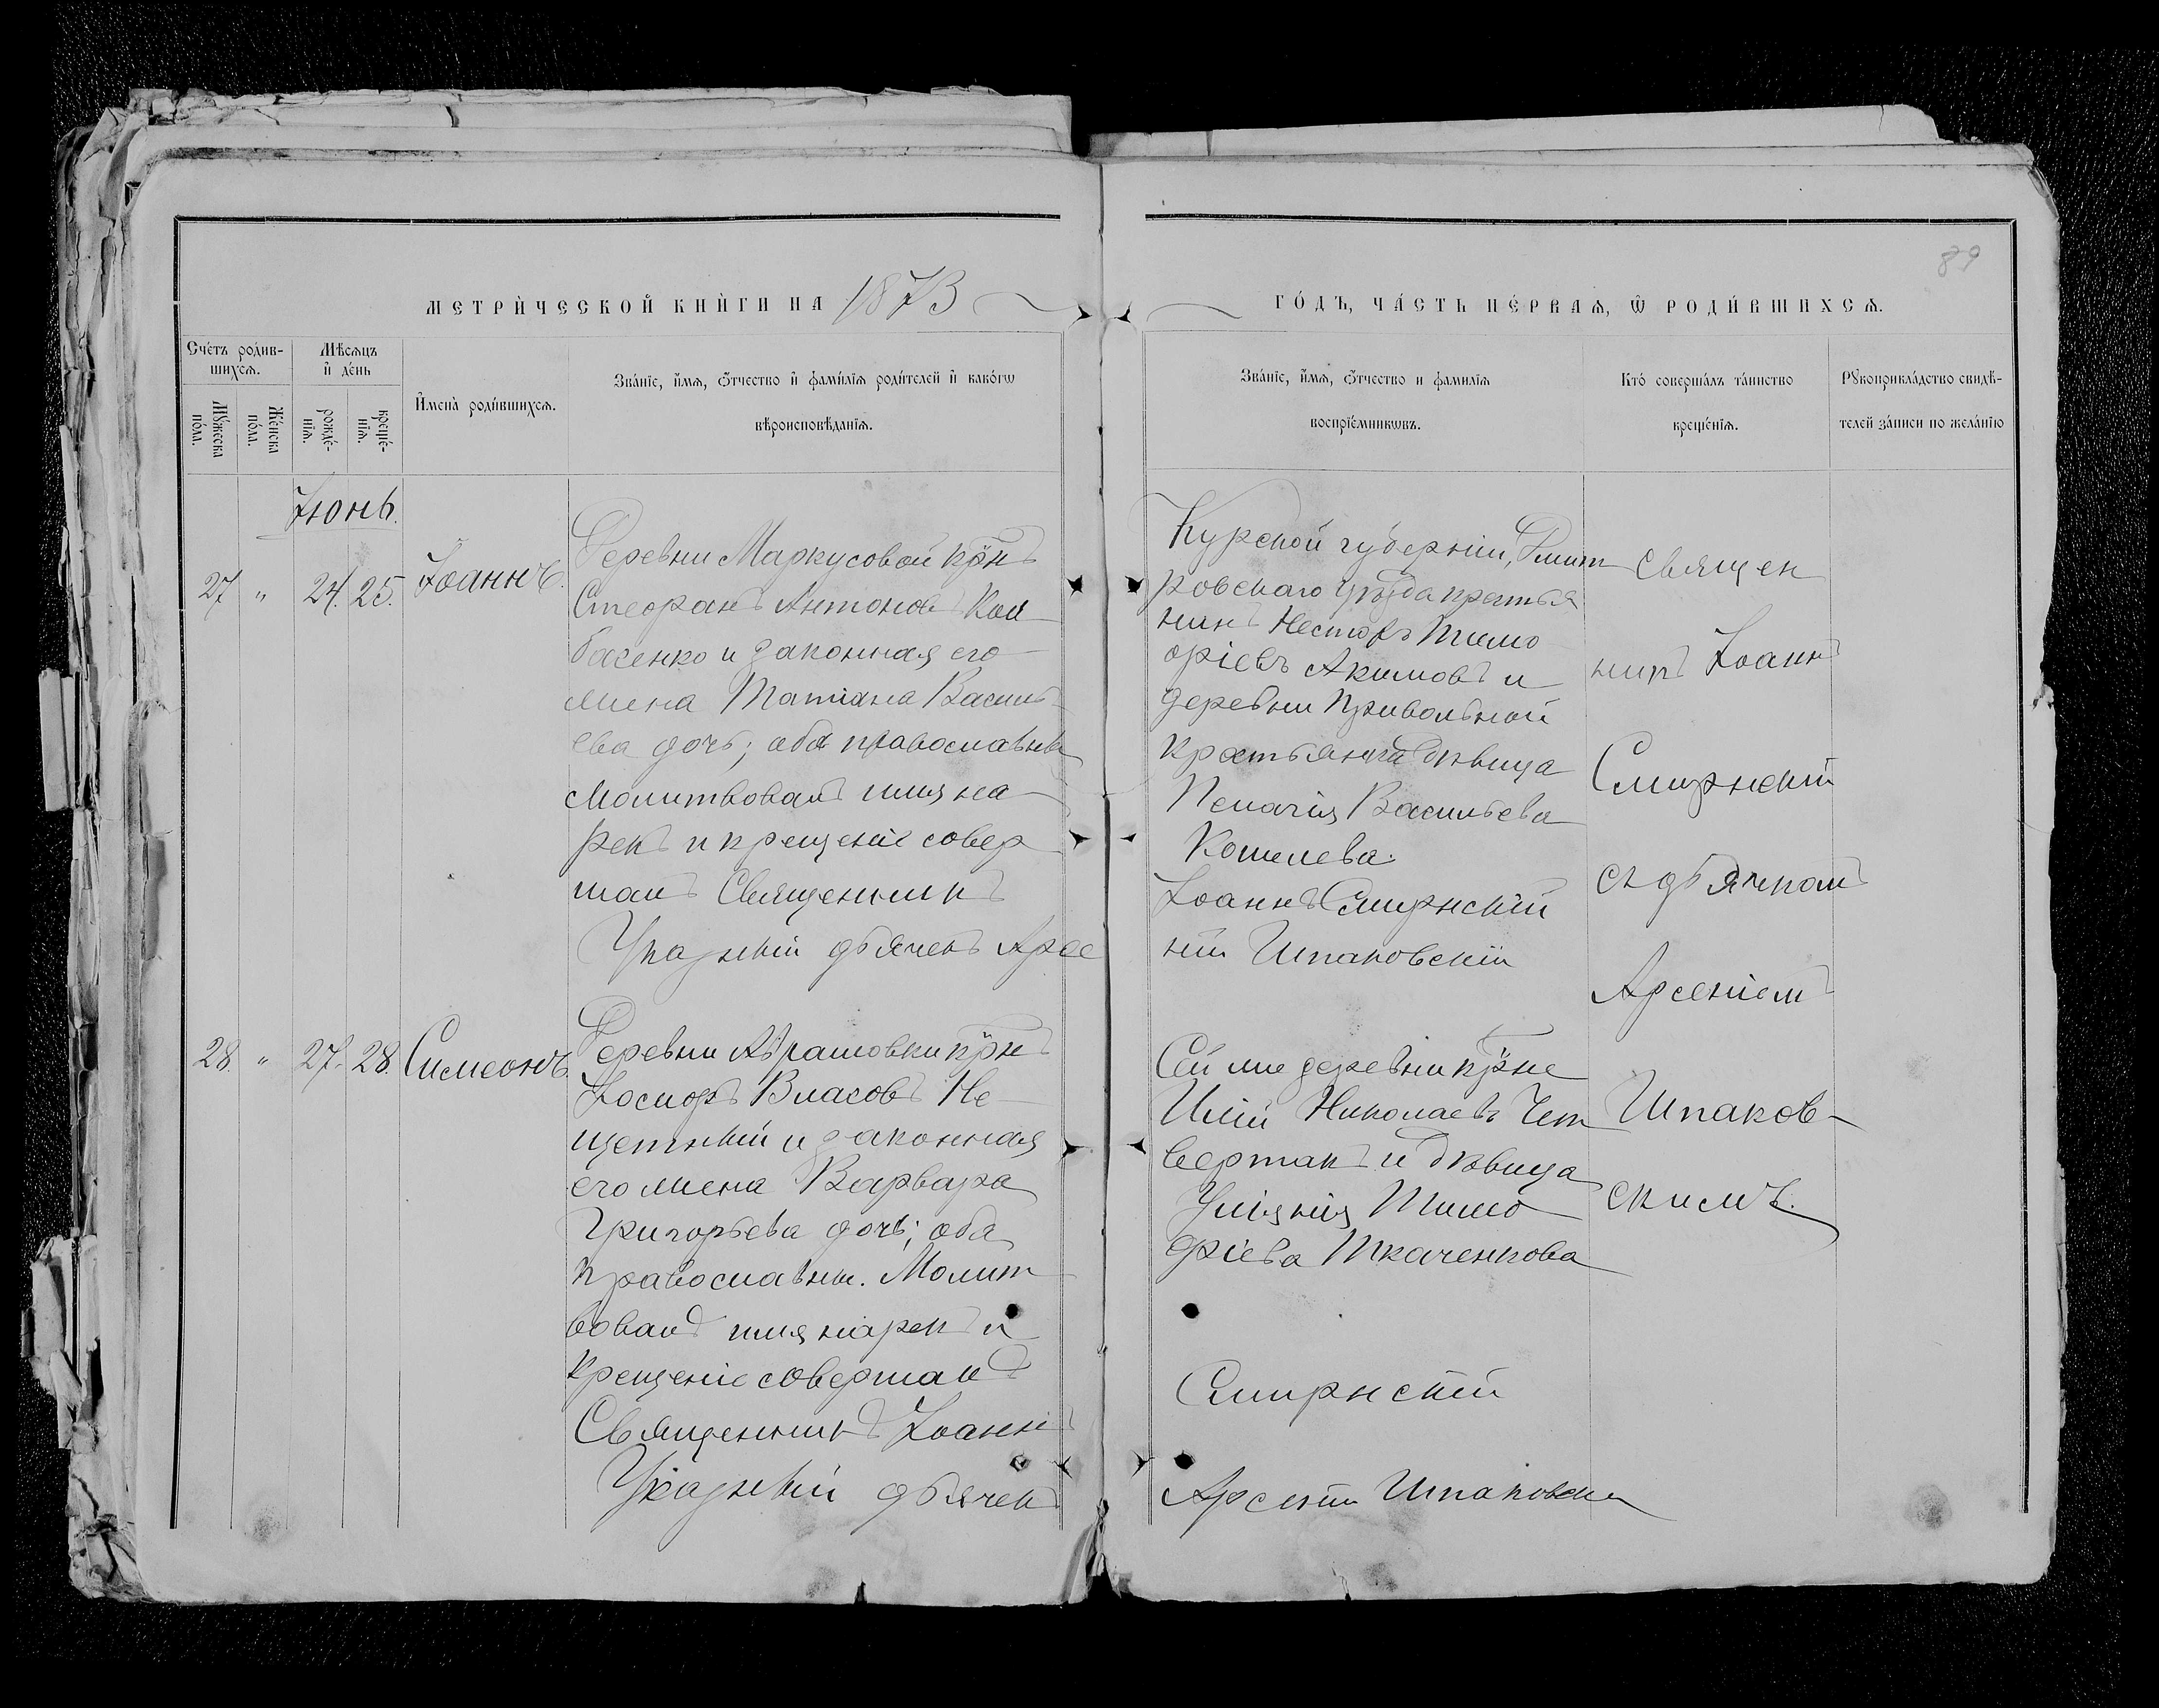 89
МЕТРИ́ЧЕСКОЙ КНИ́ГИ НА 1873
ГО́ДЪ, ЧА́СТЬ ПЕ́РВАЯ, Ѿ РОДИ́ВШИХСЯ.
Сче́тъ роди́в-
шихся.
Мѣ́сяцъ
и҆ де́нь
Мꙋ́жеска
по́ла.
Же́нска
по́ла.
рожде́-
нїя.
креще́-
нїя.
И҆мена̀ роди́вшихся.
Зва́нїе, и҆́мя, ѻ҆́тчество и҆ фами́лїя роди́телей и҆ како́гѡ
вѣроисповѣ́данїя.
Зва́нїе, и҆́мя, ѻ҆́тчество и фами́лїя
воспрїе́мникѡвъ.
Кто̀ соверша́лъ та́инство
креще́нїя.
Рꙋкоприкла́дство свидѣ́-
телей за́писи по жела́нїю
Іюнь.
27 " 24. 25. Іоаннъ.
Деревни Маркусовой крн̃ъ
Стефанъ Антоновъ Кол
басенко и законная его
жена Татіана Василь-
ева дочь; оба православны
Молитвовалъ имя на-
рекъ и крещеніе совер
шалъ Священникъ
Указный дьячекъ Арсе
Курской губерніи, Дмит
ровскаго уѣзда крестья
нинъ Несторъ Тимо
ѳіевъ Акимовъ и
деревни Привольной
крестьянка дѣвица
Пелагія Васильева
Кошелева.
Іоаннъ Смирнскій
ній Шпаковскій
Священ
никъ Іоаннъ
Смирнскій
съ дьячкомъ
Арсеніемъ
Шпаков-
скимъ.
28. " 27. 28. Симеонъ.
Деревни Абрамовки крн̃ъ
Іосифъ Власовъ Не-
щетный и законная
его жена Варвара
Григорьева дочь; оба
православны. Молит
вовалъ имя нарекъ и
крещеніе совершалъ
Священникъ Іоаннъ
Указный дьячекъ
Сей же деревни крн̃не
Илій Николаевъ Чет
вертакъ и дѣвица
Уліянія Тимо
ѳіева Ткаченкова
Смирнскій
Арсеній Шпаковскій